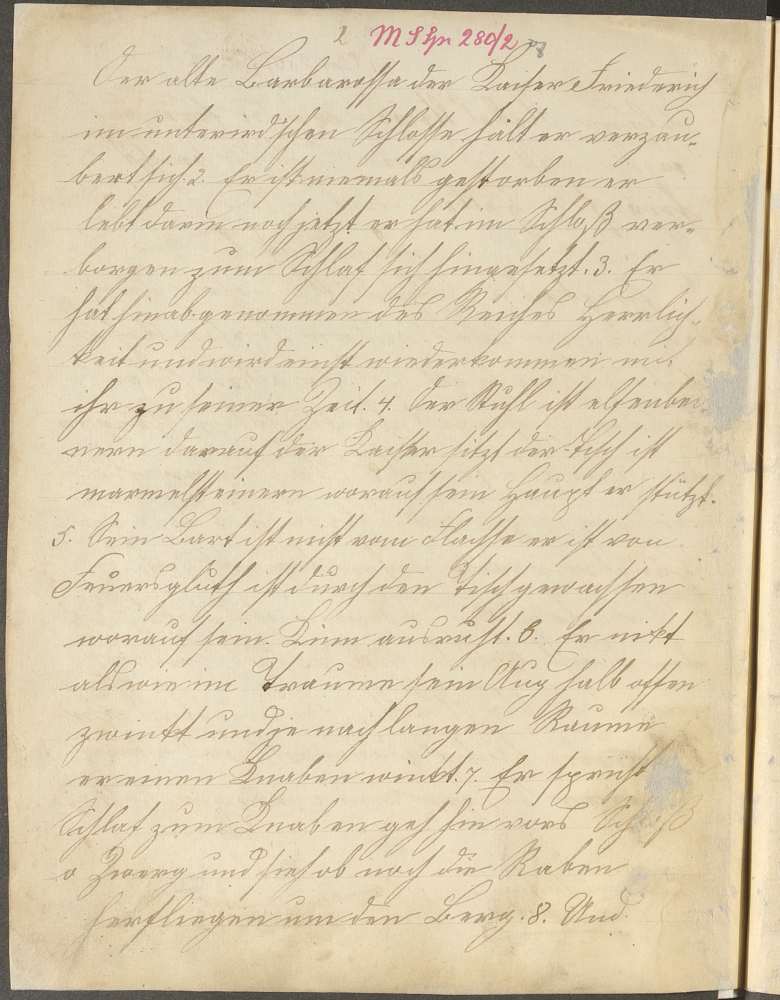 2 M S Hs 280/2
Der alte Barbarossa der Kaiser Friederich
im unterird'schen Schlosse hält er verzau-
bert sich. 2. Er ist niemals gestorben er
lebt darin noch jetzt er hat im Schloß ver-
borgen zum Schlaf sich hingesetzt. 3. Er
hat hinabgenommen des Reiches Herrlich-
keit und wird einst wiederkommen mit
ihr zu seiner Zeit. 4. Der Stuhl ist elfenbei-
nern darauf der Kaiser sitzt der Tisch ist
marmelsteinern worauf sein Haupt er stützt.
5. Sein Bart ist nicht vom Flachse er ist von
Feuersgluth ist durch den Tisch gewachsen
worauf sein Kinn ausruht. 6. Er nikt
als wie im Traume sein Aug halb offen
zwinkt und je nach langen Raume
er einen Knaben winkt. 7. Er spricht
Schlaf zum Knaben geh hin vors Schloß
o Zwerg und sieh ob noch die Raben
herfliegen um den Berg. 8. Und